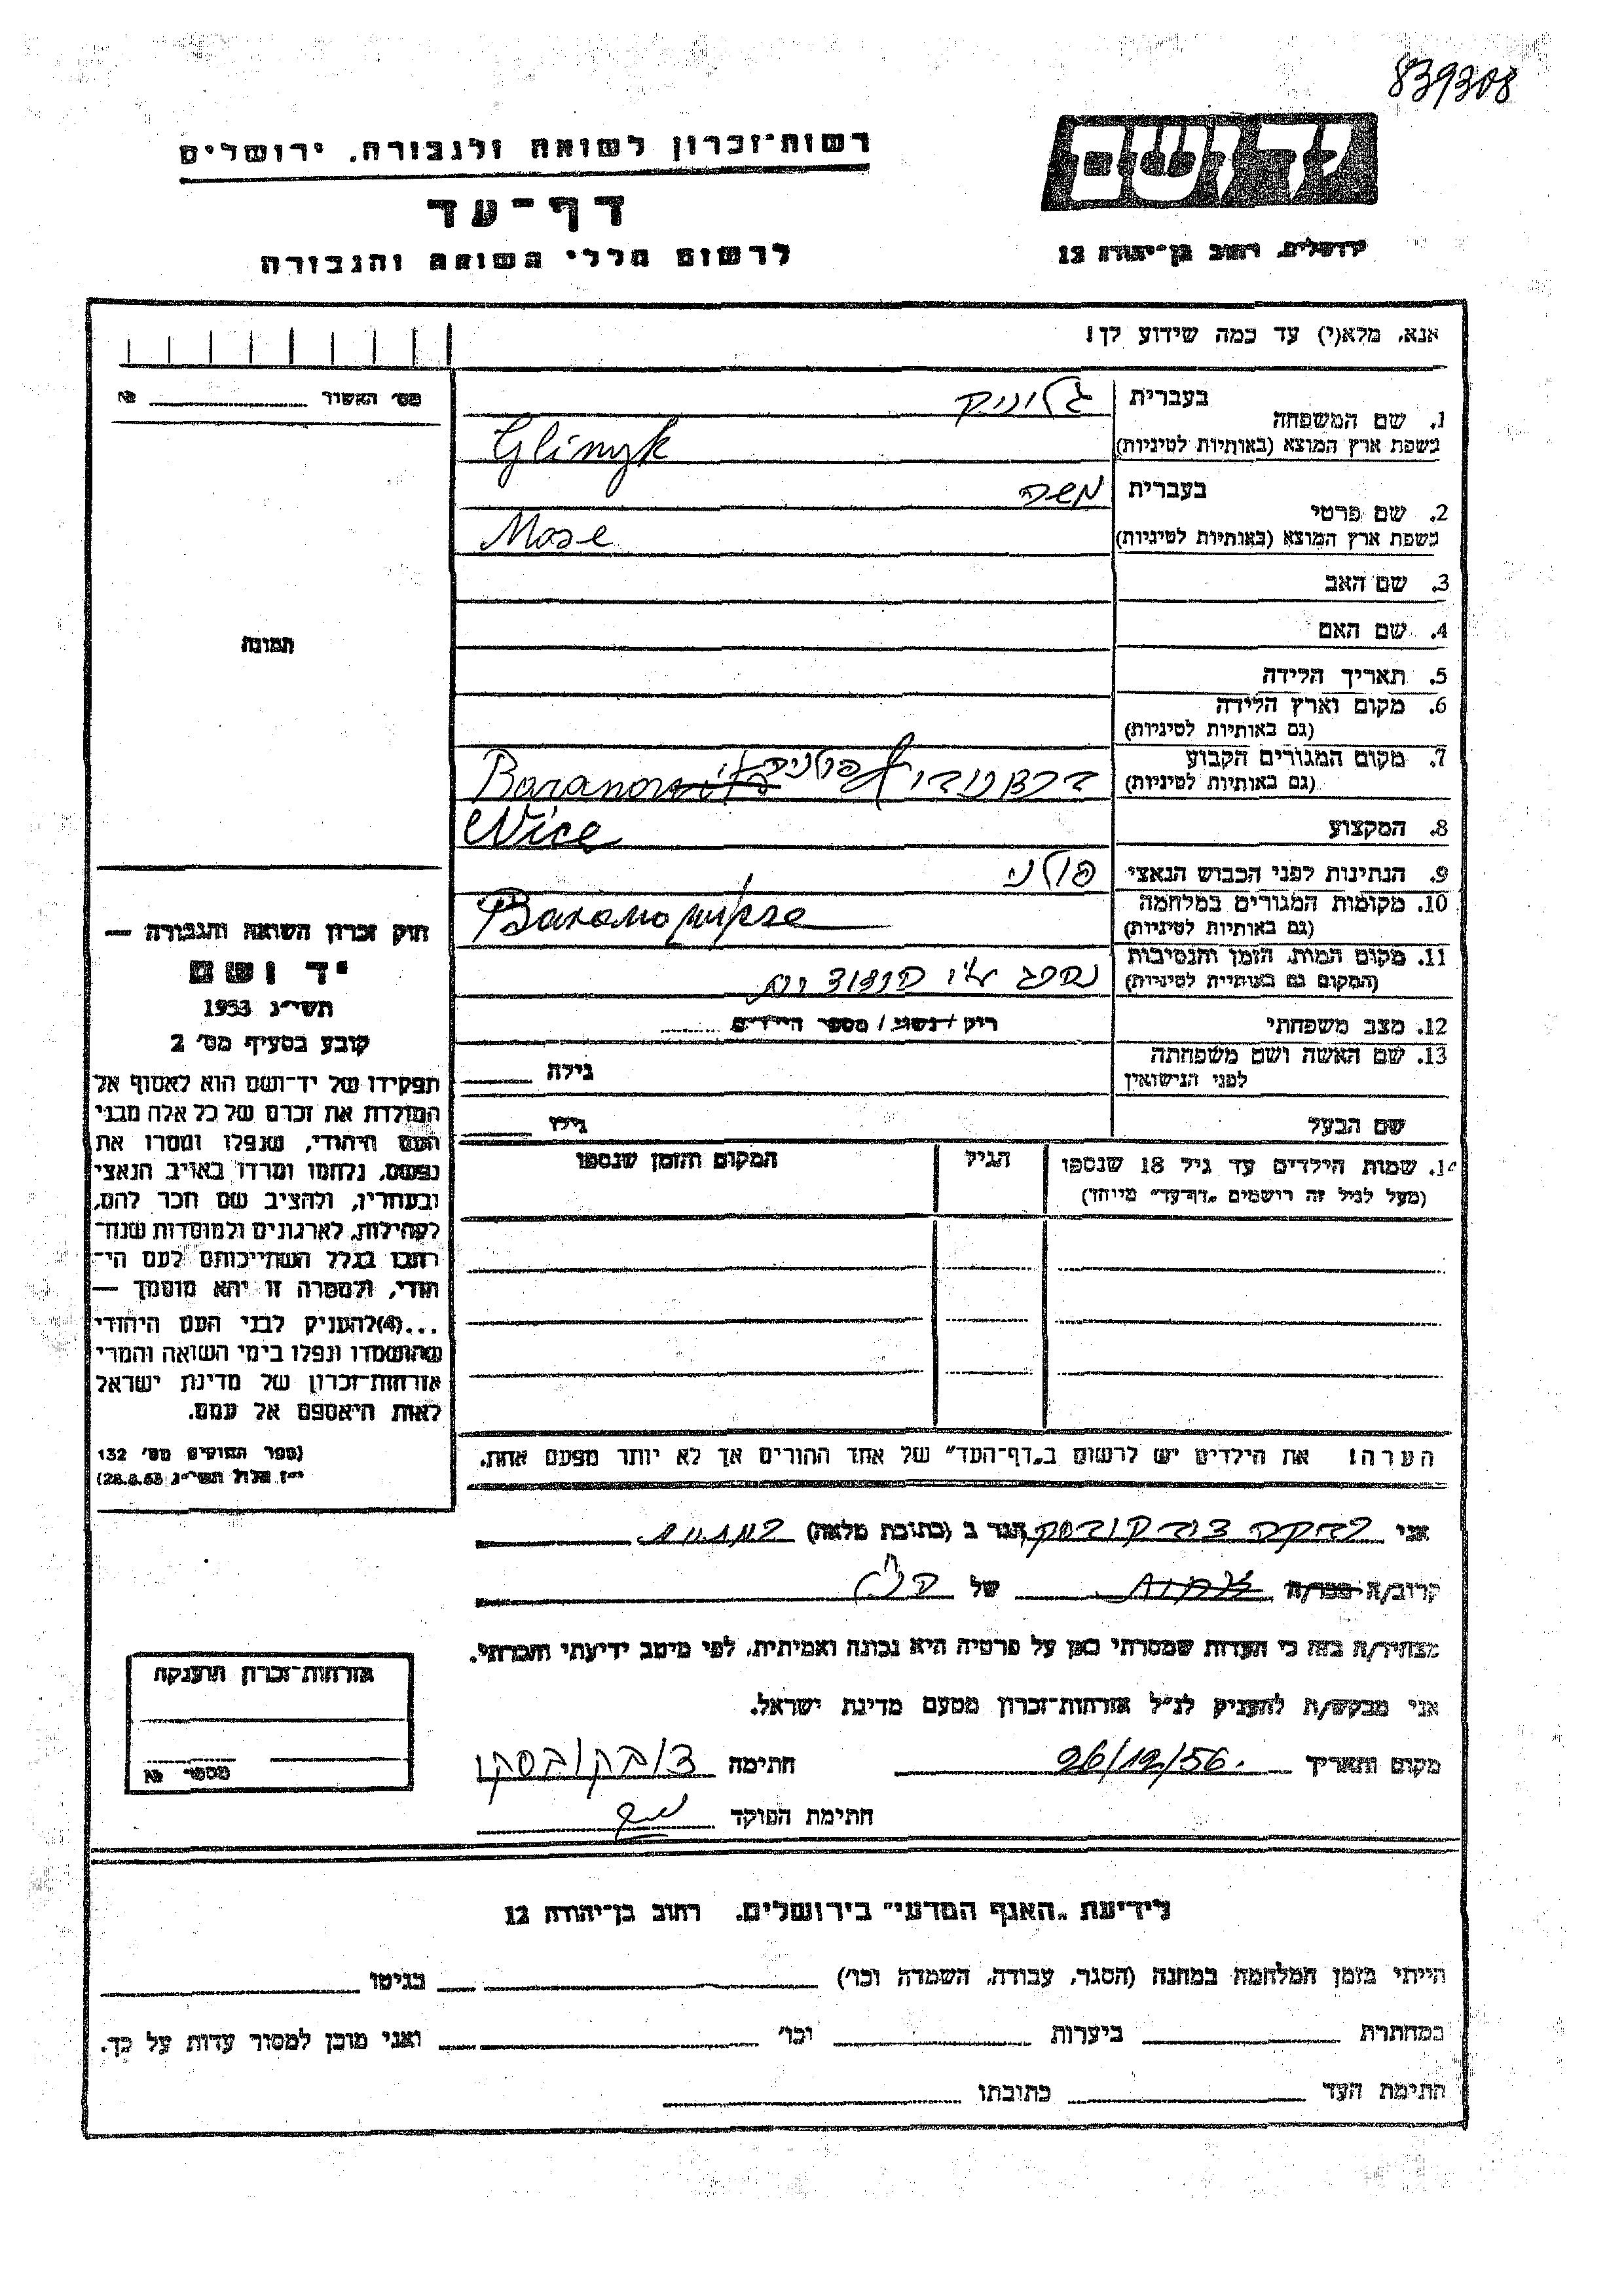 839308
יד ושם
ירושלים, רחוב בן־יהודה 12
רשות־זכרון לשואה ולגבורה, ירושלים
דף־עד
לרשום חללי השואה והגבורה
אנא, מלא(י) עד כמה שידוע לך!
מס׳ האשור № 
1. שם המשפחה בעברית גלוניק
בשפת ארץ המוצא (באותיות לטיניות) Glinyk
2. שם פרטי בעברית משה
בשפת ארץ המוצא (באותיות לטיניות) Mose
3. שם האב
4. שם האם
5. תאריך הלידה
6. מקום וארץ הלידה
(גם באותיות לטיניות)
7. מקום המגורים הקבוע
(גם באותיות לטיניות) Baranow
8. המקצוע
wice
9. הנתינות לפני הכבוש הנאצי פולני
10. מקומות המגורים במלחמה
(גם באותיות לטיניות)
11. מקום המות, הזמן והנסיבות
(המקום גם באותיות לטיניות) נספה ע״י
12. מצב משפחתי רוק / נשוי / מספר הילדים
13. שם האשה ושם משפחתה
לפני הנישואין גילה
שם הבעל גילו
14. שמות הילדים עד גיל 18 שנספו הגיל המקום והזמן שנספו
(מעל לגיל זה רושמים „דף־עד״ מיוחד)
הערה! את הילדים יש לרשום ב„דף־העד״ של אחד ההורים אך לא יותר מפעם אחת.
תמונה
חוק זכרון השואה והגבורה —
יד ושם
תשי״ג 1953
קובע בסעיף מס׳ 2
תפקידו של יד־ושם הוא לאסוף אל
המולדת את זכרם של כל אלה מבני
העם היהודי, שנפלו ומסרו את
נפשם, נלחמו ומרדו באויב הנאצי
ובעוזריו, ולהציב שם וזכר להם,
לקהילות, לארגונים ולמוסדות שנח־
רבו בגלל השתייכותם לעם הי־
הודי, ולמטרה זו יהא מוסמך —
...(4)להעניק לבני העם היהודי
שהושמדו ונפלו בימי השואה והמרי
אזרחות־זכרון של מדינת ישראל
לאות היאספם אל עמם.
(ספר החוקים מס׳ 132
י״ז אלול תשי״ג 28.8.53)
אני רבקה הגר ב (כתובת מלאה)
קרוב/ה מכר/ה של הנ״ל
מצהיר/ה בזה כי העדות שמסרתי כאן על פרטיה היא נכונה ואמיתית, לפי מיטב ידיעתי והכרתי.
אני מבקש/ת להעניק לנ״ל אזרחות־זכרון מטעם מדינת ישראל.
מקום ותאריך 26/12/56 חתימה
חתימת הפוקד
אזרחות־זכרון הוענקה
מספר №
לידיעת „האגף המדעי״ בירושלים, רחוב בן־יהודה 12
הייתי בזמן המלחמה במחנה (הסגר, עבודה, השמדה וכו׳) בגיטו
במחתרת ביערות וכו׳ ואני מוכן למסור עדות על כך.
חתימת העד כתובתו